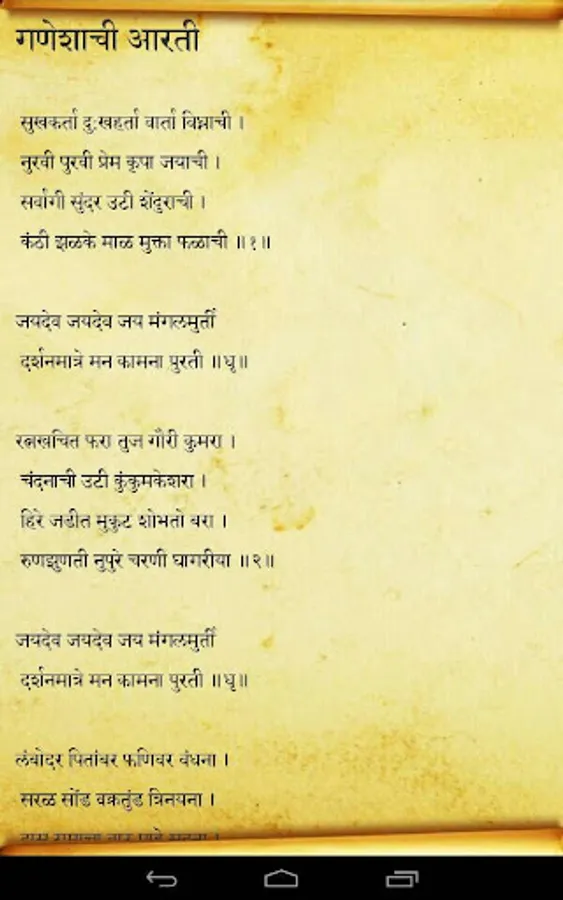 गणेशाची आरती
सुखकर्ता दुःखहर्ता वार्ता विघ्नाची ।
नुरवी पुरवी प्रेम कृपा जयाची ।
सर्वांगी सुंदर उटी शेंदुराची ।
कंठी झळके माळ मुक्ता फळाची ॥१॥
जयदेव जयदेव जय मंगलमुर्ती
दर्शनमात्रे मन कामना पुरती ॥धृ॥
रत्नखचित फरा तुज गौरी कुमरा ।
चंदनाची उटी कुंकुमकेशरा ।
हिरे जडीत मुकुट शोभतो बरा ।
रुणझुणती नुपुरे चरणी घागरीया ॥२॥
जयदेव जयदेव जय मंगलमुर्ती
दर्शनमात्रे मन कामना पुरती ॥धृ॥
लंबोदर पितांबर फणिवर वंधना ।
सरळ सोंड वक्रतुंड त्रिनयना ।